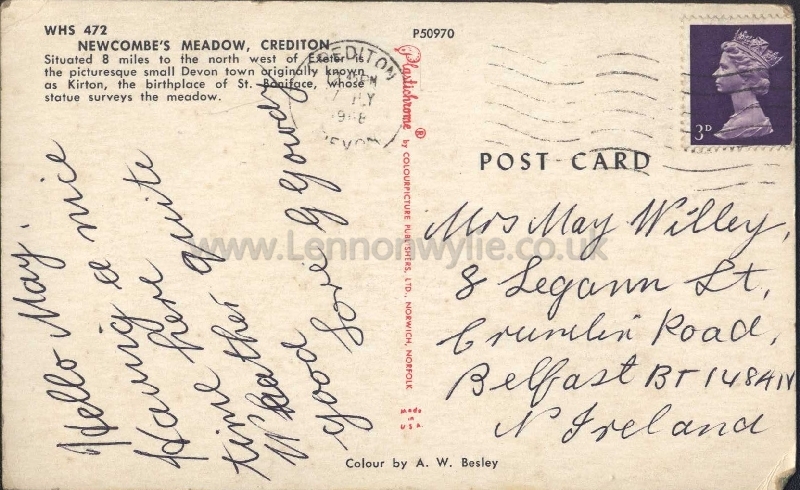 WHS 472
NEWCOMBE'S MEADOW, CREDITON
Situated 8 miles to the north west of Exeter is
the picturesque small Devon town originally known
as Kirton, the birthplace of St. Boniface, whose
statue surveys the meadow.
P50970
CREDITON
DEVON
3D
POST CARD
Plastichrome ® by COLOURPICTURE PUBLISHERS, LTD., NORWICH, NORFOLK
Made
in
U.S.A.
Hello May.
Having a nice
time here quite
good Love G Gowdy
Mrs May Willey,
8 Legann St,
Crumlin Road,
Belfast BT148AN
N Ireland
Colour by A. W. Besley
www.Lennonwylie.co.uk